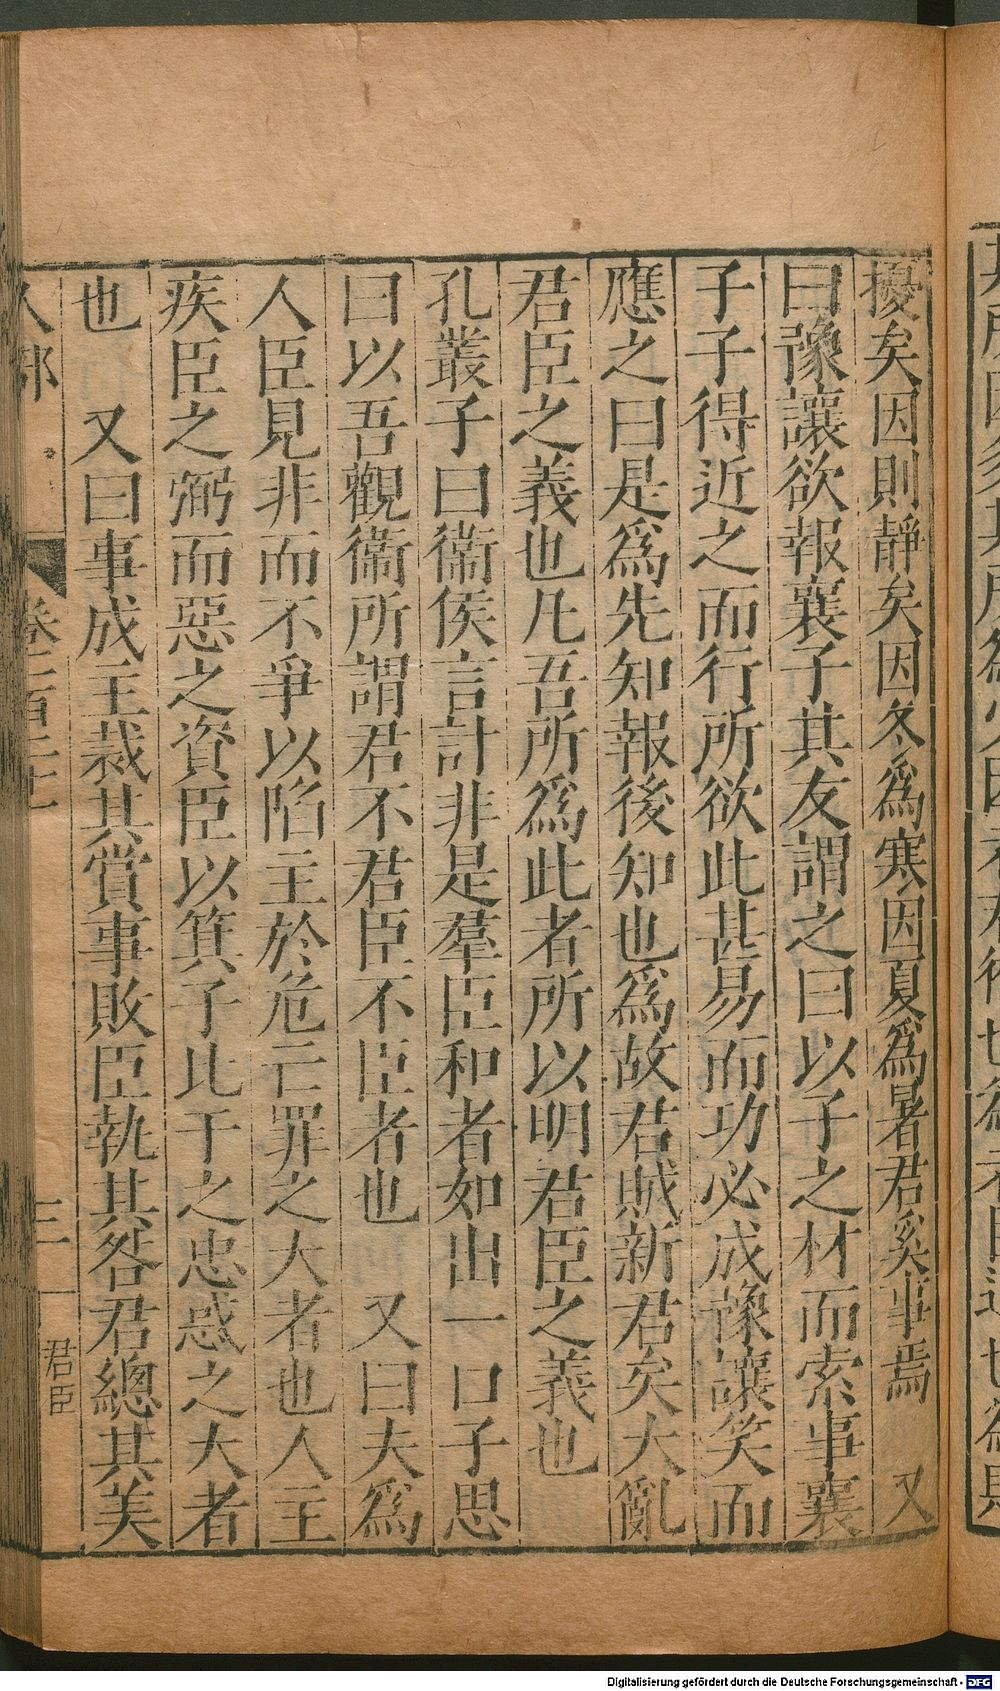 擾矣因則靜矣因冬爲寒因夏爲暑君奚事焉　又
曰豫讓欲報襄子其友謂之曰以子之材而索事襄
子子得近之而行所欲此甚易而功必成豫讓笑而
應之曰是爲先知報後知也爲故君賊新君矣大亂
君臣之義也凡吾所爲此者所以明君臣之義也
孔叢子曰衞侯言計非是羣臣和者如出一口子思
曰以吾觀衞所謂君不君臣不臣者也　又曰夫爲
人臣見非而不爭以陷主於危亡罪之大者也人主
疾臣之弼而惡之資臣以箕子比干之忠惑之大者
也　又曰事成主裁其賞事敗臣執其咎君總其美
人部
君臣
三
Digitalisierung gefördert durch die Deutsche Forschungsgemeinschaft - DFG